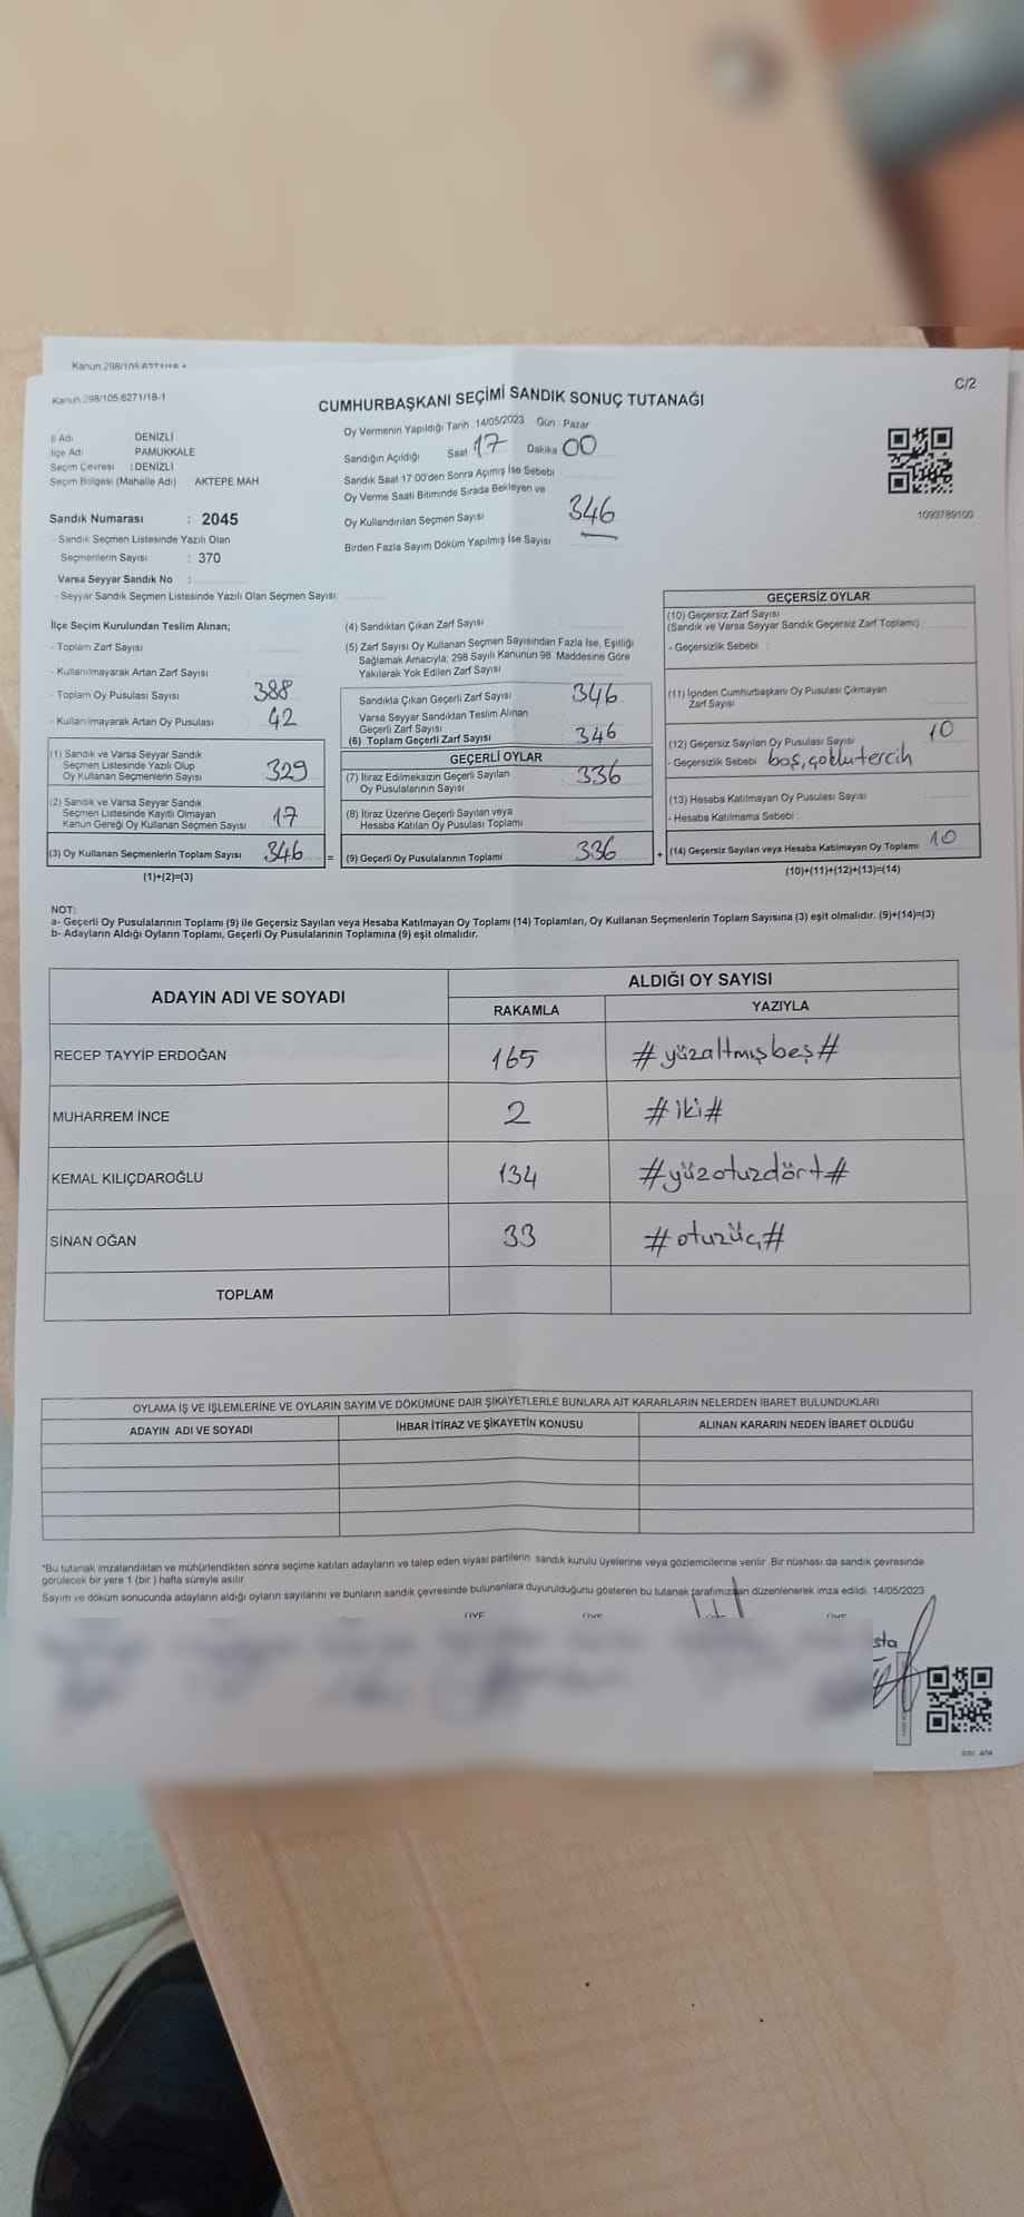 Kanun 298/105
C/2
Kanun 298/105 6271/18-1
CUMHURBAŞKANI SEÇİMİ SANDIK SONUÇ TUTANAĞI
İl Adı DENİZLİ
İlçe Adı PAMUKKALE
Seçim Çevresi : DENİZLİ
Seçim Bölgesi (Mahalle Adı) AKTEPE MAH
Oy Vermenin Yapıldığı Tarih 14/05/2023 Gün Pazar
Sandığın Açıldığı Saat 17 Dakika 00
Sandık Saat 17 00'den Sonra Açımış İse Sebebi
Oy Verme Saati Bitiminde Sırada Bekleyen ve
Oy Kullandırılan Seçmen Sayısı 346
Birden Fazla Sayım Döküm Yapılmış İse Sayısı
1099789100
Sandık Numarası : 2045
- Sandık Seçmen Listesinde Yazılı Olan
Seçmenlerin Sayısı : 370
Varsa Seyyar Sandık No :
- Seyyar Sandık Seçmen Listesinde Yazılı Olan Seçmen Sayısı
İlçe Seçim Kurulundan Teslim Alınan;
- Toplam Zarf Sayısı
- Kullanılmayarak Artan Zarf Sayısı
- Toplam Oy Pusulası Sayısı 388
- Kullanılmayarak Artan Oy Pusulası 42
(1) Sandık ve Varsa Seyyar Sandık
Seçmen Listesinde Yazılı Olup
Oy Kullanan Seçmenlerin Sayısı 329
(2) Sandık ve Varsa Seyyar Sandık
Seçmen Listesinde Kayıtlı Olmayan
Kanun Gereği Oy Kullanan Seçmen Sayısı 17
(3) Oy Kullanan Seçmenlerin Toplam Sayısı 346 =
(1)+(2)=(3)
(4) Sandıktan Çıkan Zarf Sayısı
(5) Zarf Sayısı Oy Kullanan Seçmen Sayısından Fazla İse, Eşitliği
Sağlamak Amacıyla; 298 Sayılı Kanunun 98. Maddesine Göre
Yakılarak Yok Edilen Zarf Sayısı
Sandıkta Çıkan Geçerli Zarf Sayısı 346
Varsa Seyyar Sandıktan Teslim Alınan
Geçerli Zarf Sayısı
(6) Toplam Geçerli Zarf Sayısı 346
GEÇERLİ OYLAR
(7) İtiraz Edilmeksizin Geçerli Sayılan
Oy Pusulalarının Sayısı 336
(8) İtiraz Üzerine Geçerli Sayılan veya
Hesaba Katılan Oy Pusulası Toplamı
(9) Geçerli Oy Pusulalarının Toplamı 336 +
GEÇERSİZ OYLAR
(10) Geçersiz Zarf Sayısı
(Sandık ve Varsa Seyyar Sandık Geçersiz Zarf Toplamı)
- Geçersizlik Sebebi
(11) İçinden Cumhurbaşkanı Oy Pusulası Çıkmayan
Zarf Sayısı
(12) Geçersiz Sayılan Oy Pusulası Sayısı 10
- Geçersizlik Sebebi boş, çoklu tercih
(13) Hesaba Katılmayan Oy Pusulası Sayısı
- Hesaba Katılmama Sebebi
(14) Geçersiz Sayılan veya Hesaba Katılmayan Oy Toplamı 10
(10)+(11)+(12)+(13)=(14)
NOT:
a- Geçerli Oy Pusulalarının Toplamı (9) ile Geçersiz Sayılan veya Hesaba Katılmayan Oy Toplamı (14) Toplamları, Oy Kullanan Seçmenlerin Toplam Sayısına (3) eşit olmalıdır. (9)+(14)=(3)
b- Adayların Aldığı Oyların Toplamı, Geçerli Oy Pusulalarının Toplamına (9) eşit olmalıdır.
ADAYIN ADI VE SOYADI ALDIĞI OY SAYISI
RAKAMLA YAZIYLA
RECEP TAYYİP ERDOĞAN 165 #yüzaltmışbeş#
MUHARREM İNCE 2 #iki#
KEMAL KILIÇDAROĞLU 134 #yüzotuzdört#
SİNAN OĞAN 33 #otuzüç#
TOPLAM
OYLAMA İŞ VE İŞLEMLERİNE VE OYLARIN SAYIM VE DÖKÜMÜNE DAİR ŞİKAYETLERLE BUNLARA AİT KARARLARIN NELERDEN İBARET BULUNDUKLARI
ADAYIN ADI VE SOYADI İHBAR İTİRAZ VE ŞİKAYETİN KONUSU ALINAN KARARIN NEDEN İBARET OLDUĞU
*Bu tutanak imzalandıktan ve mühürlendikten sonra seçime katılan adayların ve talep eden siyasi partilerin sandık kurulu üyelerine veya gözlemcilerine verilir. Bir nüshası da sandık çevresinde
görülecek bir yere 1 (bir) hafta süreyle asılır.
Sayım ve döküm sonucunda adayların aldığı oyların sayılarını ve bunların sandık çevresinde bulunanlara duyurulduğunu gösteren bu tutanak tarafımızdan düzenlenerek imza edildi. 14/05/2023